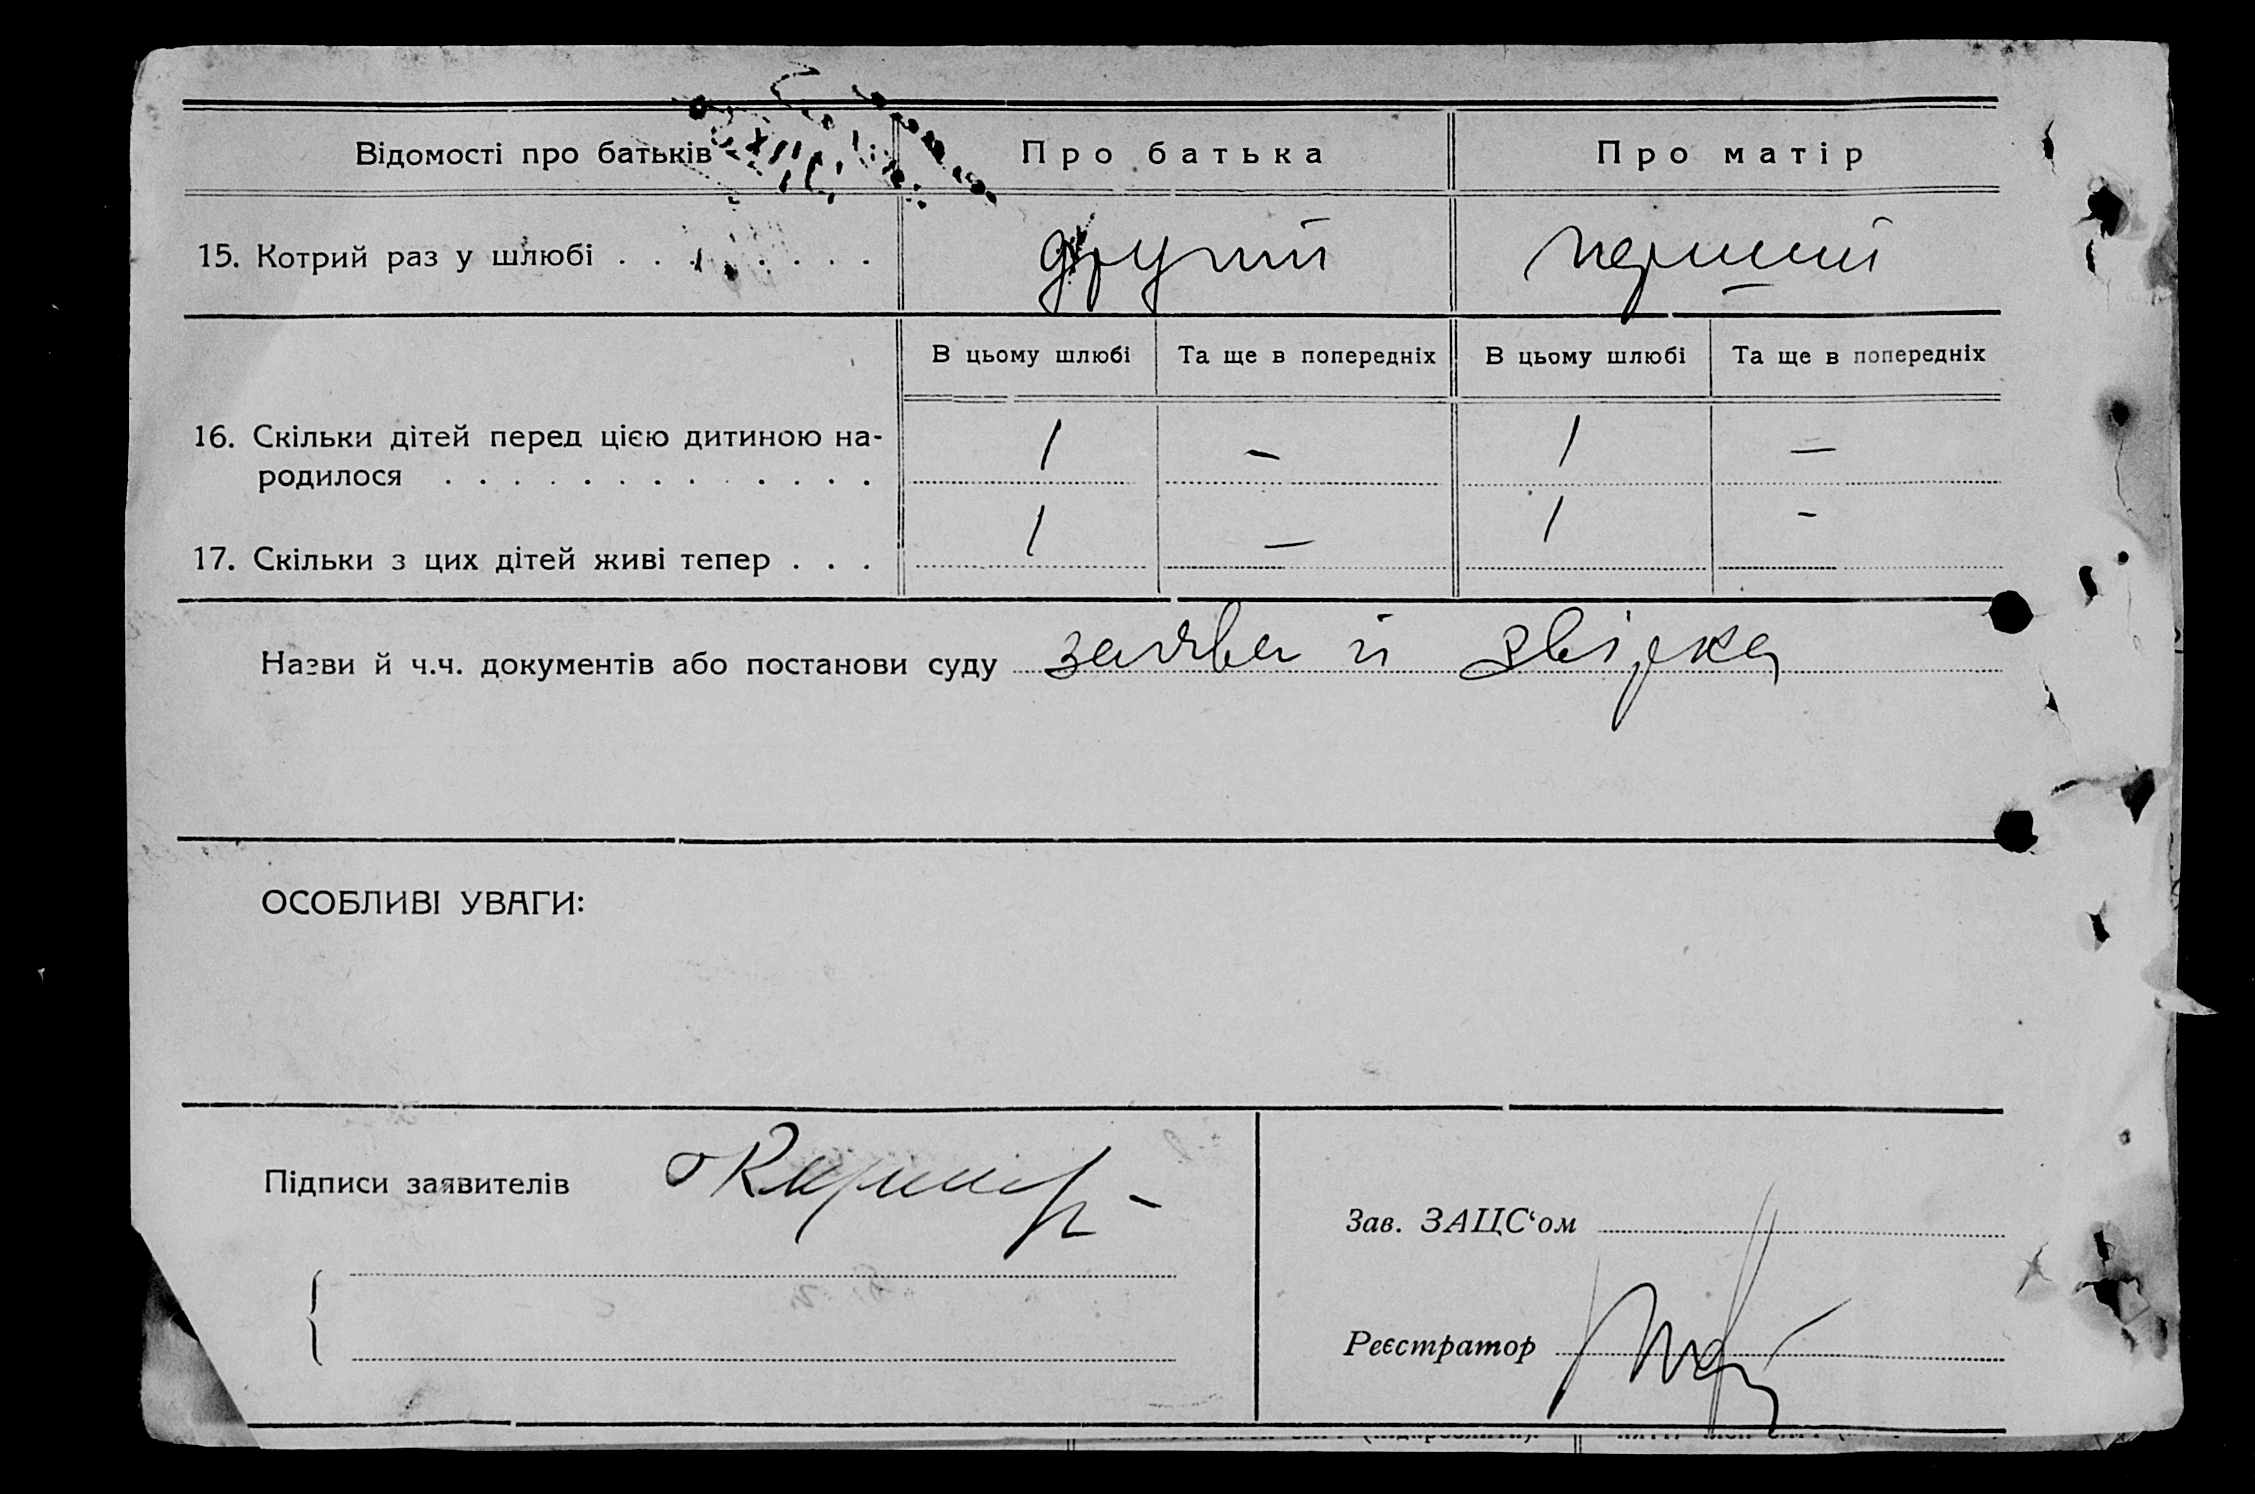 Відомості про батьків Про батька Про матір
15. Котрий раз у шлюбі . . . . . . . . другий перший
В цьому шлюбі Та ще в попередніх В цьому шлюбі Та ще в попередніх
16. Скільки дітей перед цією дитиною на-
родилося . . . . . . . . . . . . . 1 – 1 –
17. Скільки з цих дітей живі тепер . . . 1 – 1 –
Назви й ч.ч. документів або постанови суду заява й звірка
ОСОБЛИВІ УВАГИ:
Підписи заявителів
Зав. ЗАЦС‘ом
Реєстратор